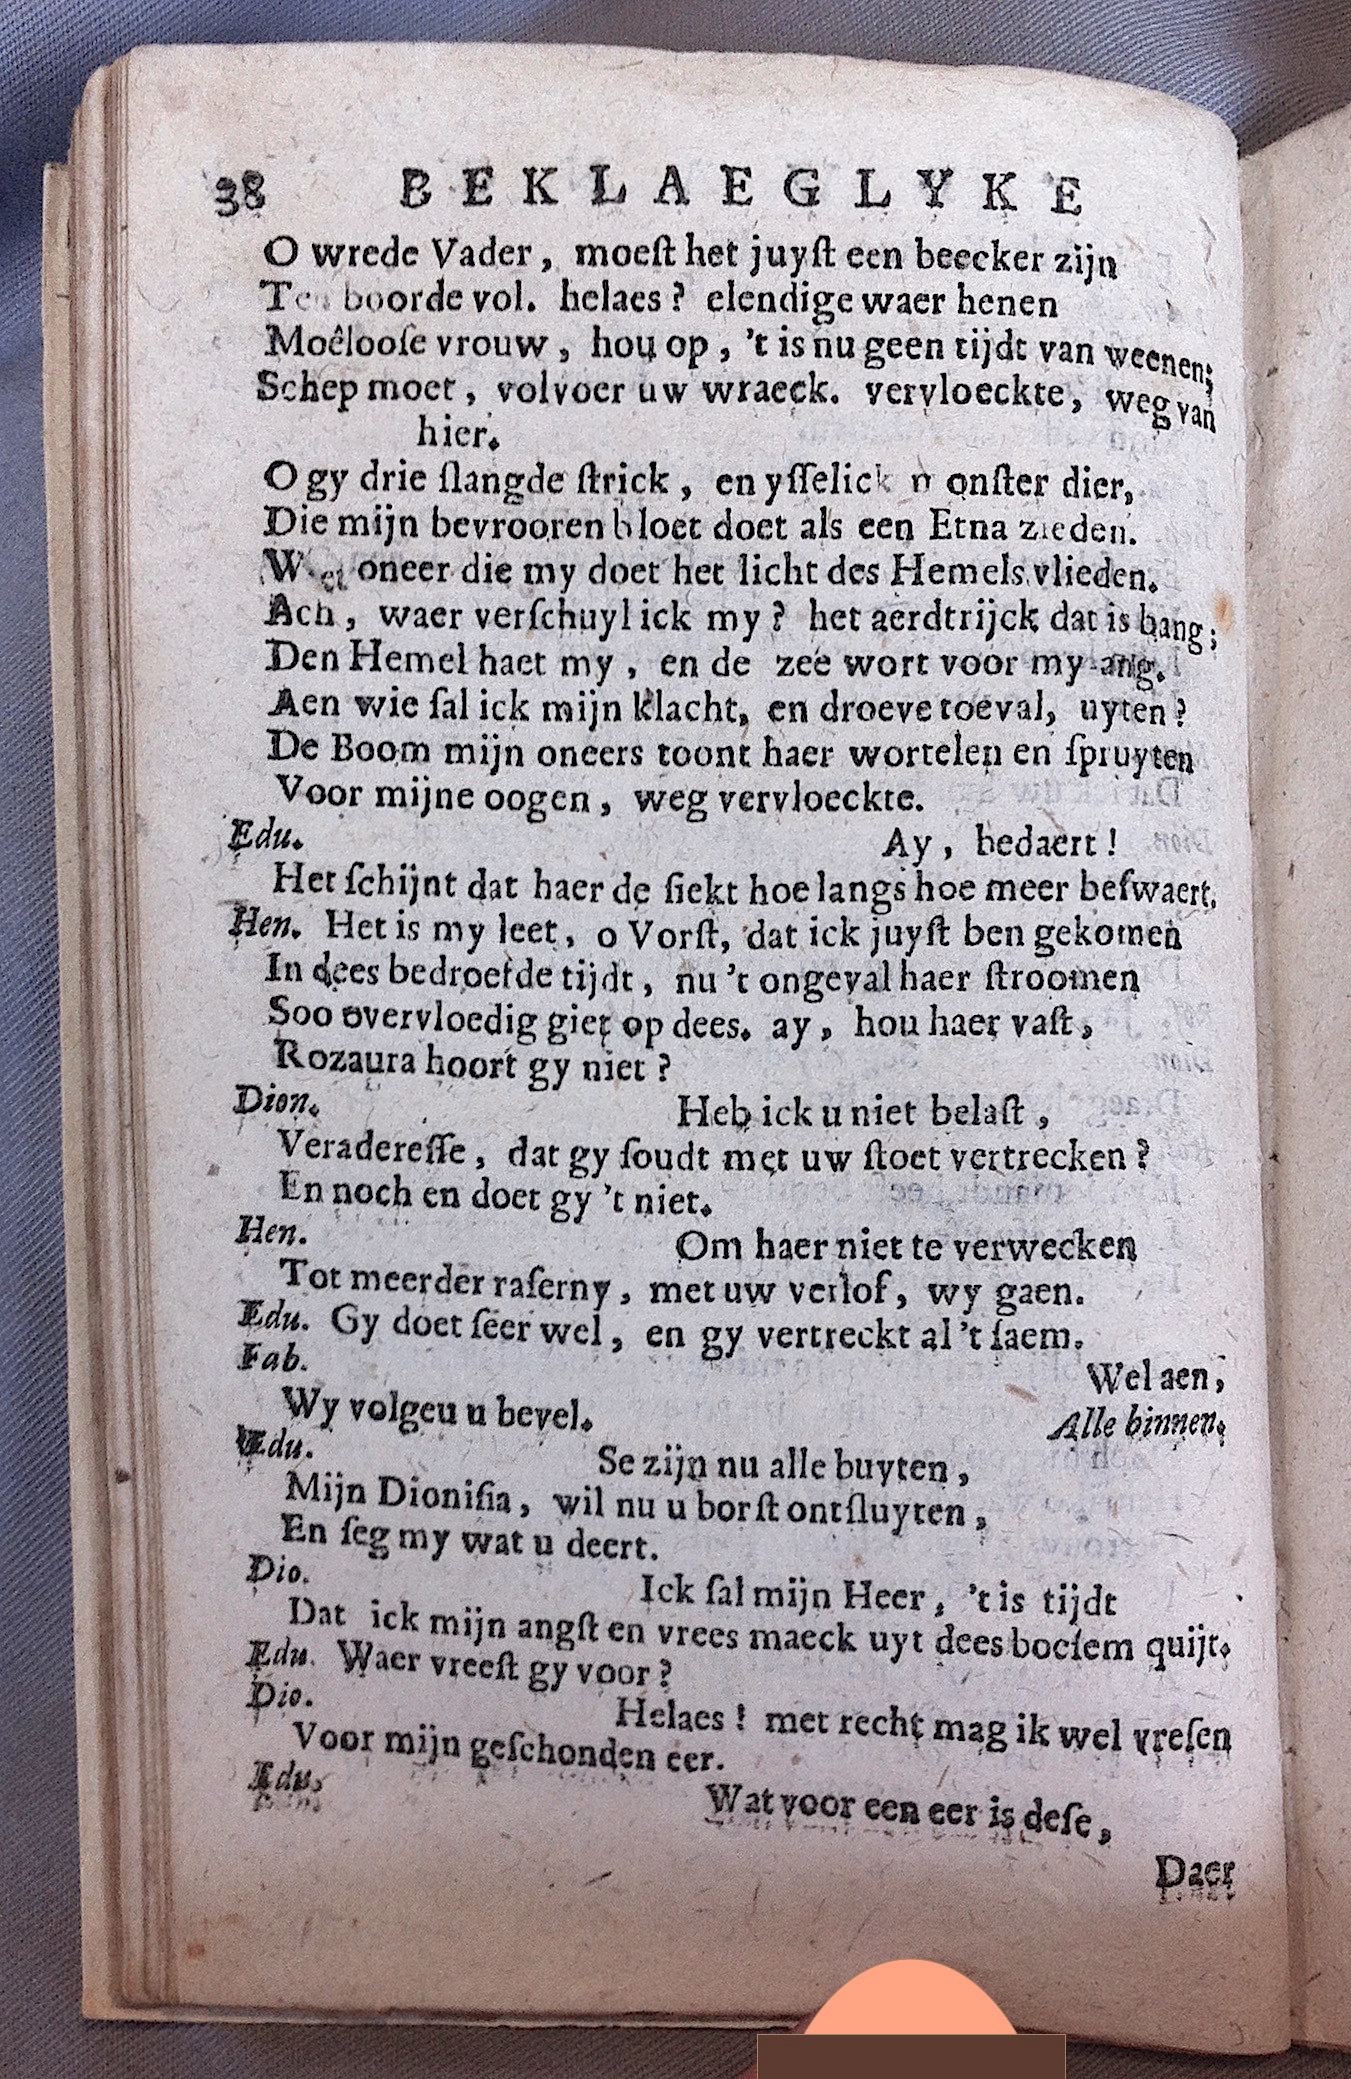 38 BEKLAEGLYKE
O wrede Vader, moeſt het juyſt een beecker zijn
Ten boorde vol. helaes? elendige waer henen
Moêlooſe vrouw, hou op, 't is nu geen tijdt van weenen;
Schep moet, volvoer uw wraeck. vervloeckte, weg van
hier.
O gy drie ſlangde ſtrick, en yſſelick monſter dier,
Die mijn bevrooren bloet doet als een Etna zieden.
oneer die my doet het licht des Hemels vlieden.
Ach, waer verſchuyl ick my? het aerdtrijck dat is bang;
Den Hemel haet my, en de zee wort voor my ang.
Aen wie ſal ick mijn klacht, en droeve toeval, uyten?
De Boom mijn oneers toont haer wortelen en ſpruyten
Voor mijne oogen, weg vervloeckte.
Edu. Ay, bedaert!
Het ſchijnt dat haer de ſiekt hoe langs hoe meer beſwaert.
Hen. Het is my leet, o Vorſt, dat ick juyſt ben gekomen
In dees bedroefde tijdt, nu 't ongeval haer ſtroomen
Soo overvloedig giet op dees. ay, hou haer vaſt,
Rozaura hoort gy niet?
Dion. Heb ick u niet belaſt,
Veradereſſe, dat gy ſoudt met uw ſtoet vertrecken?
En noch en doet gy 't niet.
Hen. Om haer niet te verwecken
Tot meerder raſerny, met uw verlof, wy gaen.
Edu. Gy doet ſeer wel, en gy vertreckt al 't ſaem.
Fab. Wel aen,
Wy volgeu u bevel. Alle binnen.
Edu. Se zijn nu alle buyten,
Mijn Dioniſia, wil nu u borſt ontſluyten,
En ſeg my wat u deert.
Dio. Ick ſal mijn Heer, 't is tijdt
Dat ick mijn angſt en vrees maeck uyt dees boeſem quijt.
Edu. Waer vreeſt gy voor?
Dio. Helaes! met recht mag ik wel vreſen
Voor mijn geſchonden eer.
Edu. Wat voor een eer is deſe,
Daer